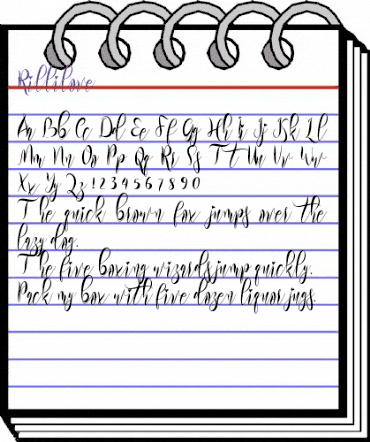 Rillilove
Aa Bb Cc Dd Ee Ff Gg Hh Ii Jj Kk Ll
Mm Nn Oo Pp Qq Rr Ss Tt Uu Vv Ww
Xx Yy Zz 1234567890
The quick brown fox jumps over the
lazy dog.
The five boxing wizards jump quickly.
Pack my box with five dozen liquor jugs.